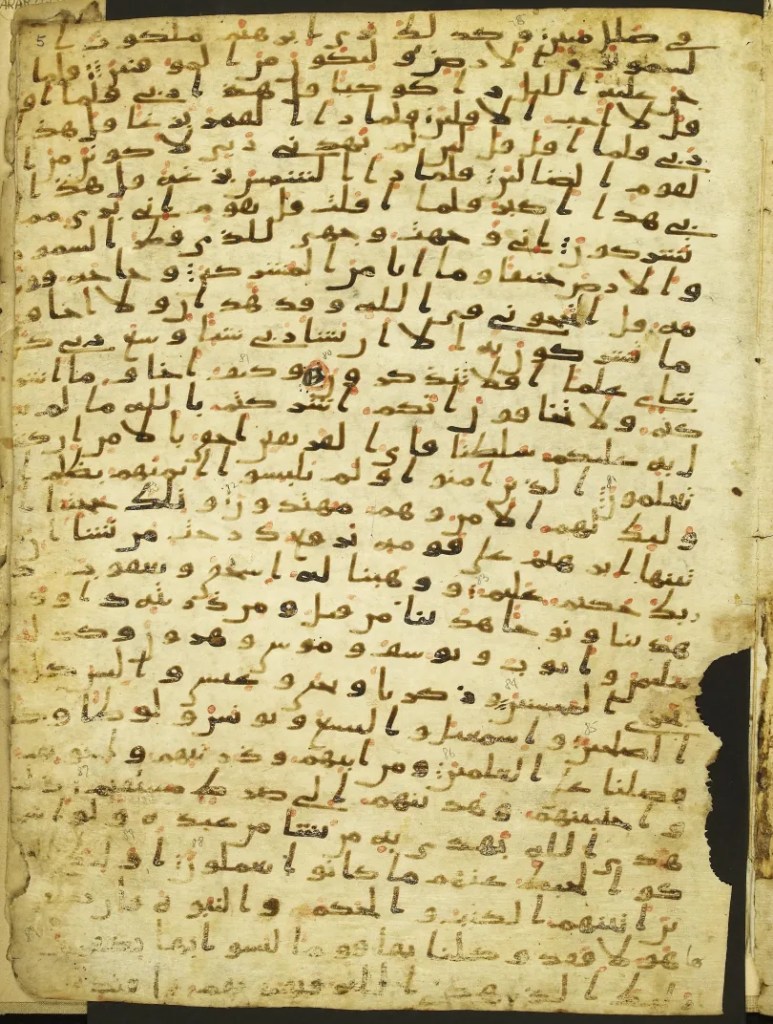 5
في ضلل مبين وكذلك نري ابرهيم ملكوت ا
لسموت والارض وليكون من الموقنين فلما
جن عليه الليل را كوكبا قل هذا ربي فلما افل
قل لا احب الافلين فلما را القمر بزغا قل هذا
ربي فلما افل قل لين لم يهدني ربي لاكونن من ا
لقوم الضالين فلما را الشمس بزغه قل هذا ر
بي هذا اكبر فلما افلت قل يقوم اني بري مما
تشركون اني وجهت وجهي للذي فطر السمو
والارض حنيفا وما انا من المشركين وحاجه قو
مه قل اتحجوني في الله وقد هدين ولا اخاف
ما تشركون به الا ان يشا ربي شيا وسع ربي كل
شاي علما افلا تتذكرون وكيف اخاف ما اشر
كتم ولا تخافون انكم اشركتم بالله ما لم
ل به عليكم سلطنا فاي الفريقين احق بالامن ان
تعلمون الذين امنوا ولم يلبسوا ايمنهم بظلم ا
وليك لهم الامن وهم مهتدون وتلك حجتنا ا
تينها ابرهيم على قومه نرفع درجت من نشا ان
ربك حكيم عليم ووهبنا له اسحق ويعقوب
هدينا ونوحا هدينا من قبل ومن ذريته داود و
سليمن وايوب ويوسف وموسى وهرون وكذلك
نجزي المحسنين وزكريا ويحيى وعيسى والياس كل
الصلحين واسمعيل واليسع ويونس ولوطا وكلا
فضلنا على العلمين ومن ابايهم وذريتهم واخونهم
واجتبينهم وهدينهم الى صرط مستقيم ذلك
هدي الله يهدي به من يشا من عبده ولو اشر
كوا لحبط عنهم ما كانوا يعملون اوليك
ين اتينهم الكتب والحكم والنبوة فان
بها هولا فقد وكلنا بها قوما ليسوا بها بكفرين
وليك الذين هدي الله فبهديهم